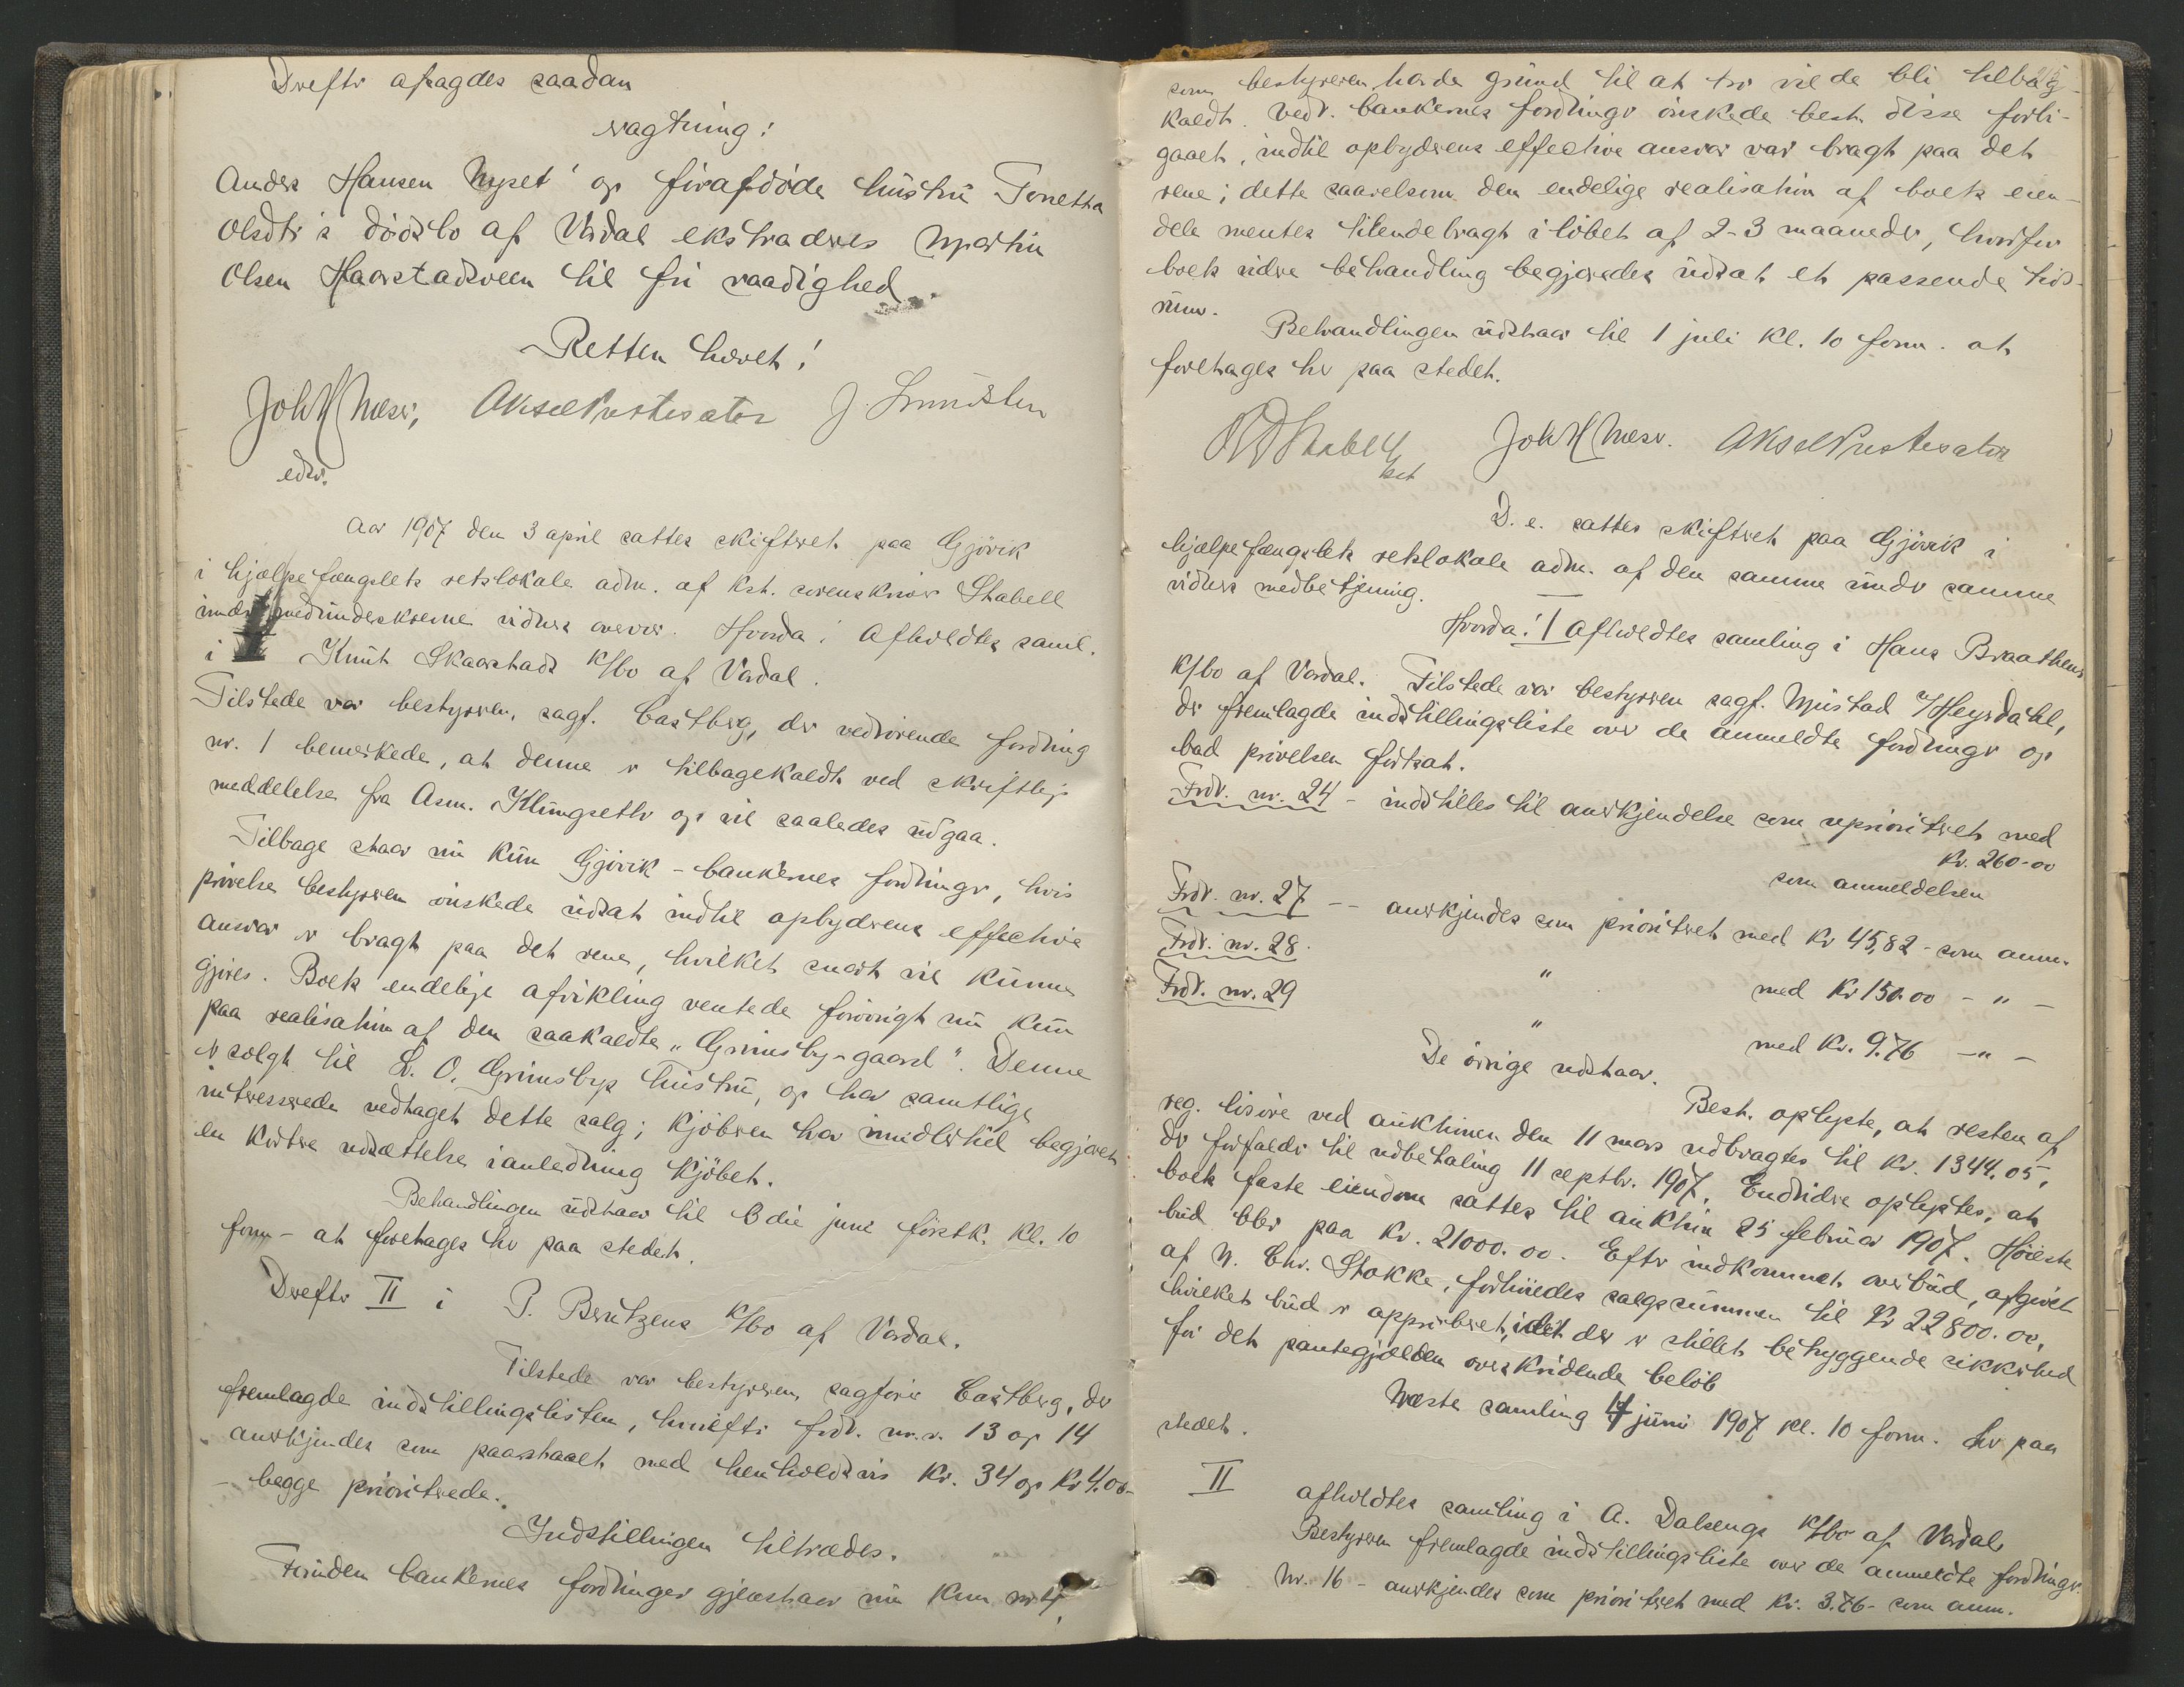 Dreftr afsagdes saadan
ragtning:
Anders Hansen Nyset og førafdøde hustru Tonetha
Olsdtr's dødsbo af Vardal ekstraderes Martin
Olsen Haarstadsveen til fri raadighed.
Retten hævet!
Joh H Næser, Aksel Prestesater J. Lundsten
edsv.
Aar 1907 den 3 april sattes skifteret paa Gjøvik
i hjælpefængslets retslokale adm. af kst. sorenskriver Stabell
under medunderskrevne vidners overvær. Hvorda: Afholdtes saml.
i Knut Skaarstads k/bo af Vardal.
Tilstede var bestyreren, sagf. Castberg, der vedrørende fordring
nr. 1 bemerkede, at denne er tilbagekaldt ved skriftlig
meddelelse fra Asm. Klungseth og vil saaledes udgaa.
Tilbage staar nu kun Gjøvik-bankernes fordringer, hvis
prøvelse bestyreren ønskede udsat indtil opbyderens effective
ansvar er bragt paa det rene, hvilket snart vil kunne
gjøres. Boets endelige afvikling ventede forøvrigt nu kun
paa realisation af den saakaldte "Grimsby-gaard". Denne
er solgt til L. O. Grimsbys hustru, og har samtlige
interesserede vedtaget dette salg; kjøberen har imidlertid begjæret
en kortere udsættelse i anledning kjøbet.
Behandlingen udstaar til 3die juni førstk. kl. 10
form - at foretages her paa stedet.
Derefter II i P. Berntzens k/bo af Vardal.
Tilstede var bestyreren, sagfører Castberg, der
fremlagde indstillingslisten, hvorefter fodr. nr.s. 13 og 14
anerkjendes som paastaaet med henholdsvis Kr. 34 og Kr 4.00-
- begge prioriterede.
Indstillingen tiltrædes.
Foruden bankernes fordringer gjenstaar nu kun nr. 4,
som bestyreren havde grund til at tro vilde bli tilbage-
kaldt. Vedr. bankernes fordringer ønskede best. disse forbi-
gaaet, indtil opbyderens effective ansvar var bragt paa det
rene; dette saavelsom den endelige realisation af boets eien-
dele mentes tilendebragt i løbet af 2-3 maaneder, hvorfor
boets videre behandling begjæredes udsat et passende tids-
rum.
Behandlingen udstaar til 1 juli kl. 10 form. at
foretages her paa stedet.
Stabell Joh H Næser. Aksel Prestesater
kst
D. e. sattes skifteret paa Gjøvik i
hjælpefængslets retslokale adm. af den samme under samme
vidners medbetjening.
Hvorda: I afholdtes samling i Hans Braathens
k/bo af Vardal. Tilstede var bestyreren sagf. Mustad v/Heyerdahl,
der fremlagde indstillingsliste over de anmeldte fordringer og
bad prøvelsen fortsat.
Frdr. nr. 24 - indstilles til anerkjendelse som uprioriteret med
Kr. 260-00
som anmeldelsen
Frdr. nr. 27 -- anerkjendes som prioriteret med Kr 45,82 - som anm.
Frdr. nr. 28. " med Kr 150.00 - " -
Frdr. nr. 29 " med Kr. 9.76 - " -
De øvrige udstaar.
Best. oplyste, at resten af
reg. løsøre ved auktionen den 11 mars udbragtes til Kr. 1344.05,
der forfalder til udbetaling 11 septbr. 1907. Endvidere oplystes, at
boets faste eiendom sattes til auktion 25 februar 1907. Høieste
bud blev paa Kr. 21000.00. Efter indkommet overbud, afgivet
af N. Chr. Stokke, forhøiedes salgssummen til Kr 22800.00,
hvilket bud er approberet, idet der er stillet betryggende sikkerhed
for det pantegjælden overskridende beløb
Næste samling 17 juni 1907 kl. 10 form. her paa
stedet.
II afholdtes samling i A. Dalsengs k/bo af Vardal
Bestyreren fremlagde indstillingsliste over de anmeldte fordringer.
Nr. 16 - anerkjendes som prioriteret med Kr. 3.76- som anm.